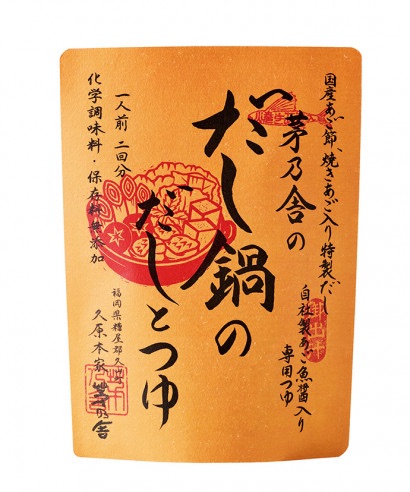 国産あご節、焼きあご入り 特製だし
自社製あご魚醤入り
専用つゆ
茅乃舎の
だし鍋の
だしとつゆ
一人前 二回分
化学調味料・保存料無添加
福岡県糟屋郡久山町
久原本家 茅乃舎